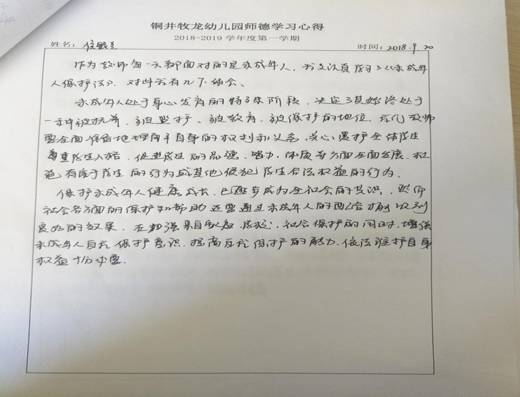 铜井牧龙幼儿园师德学习心得
2018-2019学年度第一学期
姓名: 时间:2018.9.20
作为教师每一天都面对的是未成年人,我又认真学习了《未成年
人保护法》,对此我有几下体会。
未成年人处于身心发育的特殊阶段,决定了其始终处于
一种被抚养、被监护、被教育、被保护的地位,我们教师
要全面准确地理解自身的权利和义务,关心、爱护全体学生
尊重学生人格,促进学生的品德、智力、体质等方面全面发展,制
止有害于学生的行为或其他侵犯学生合法权益的行为。
保护未成年人健康成长,已逐步成为全社会的共识,然而
社会各方面的保护和帮助还需通过未成年人的配合才得以到
良好的效果,在加强来自家庭、学校、社会保护的同时,增强
未成年人自我保护意识,提高自我保护的能力,依法维护自身
权益十分必要。